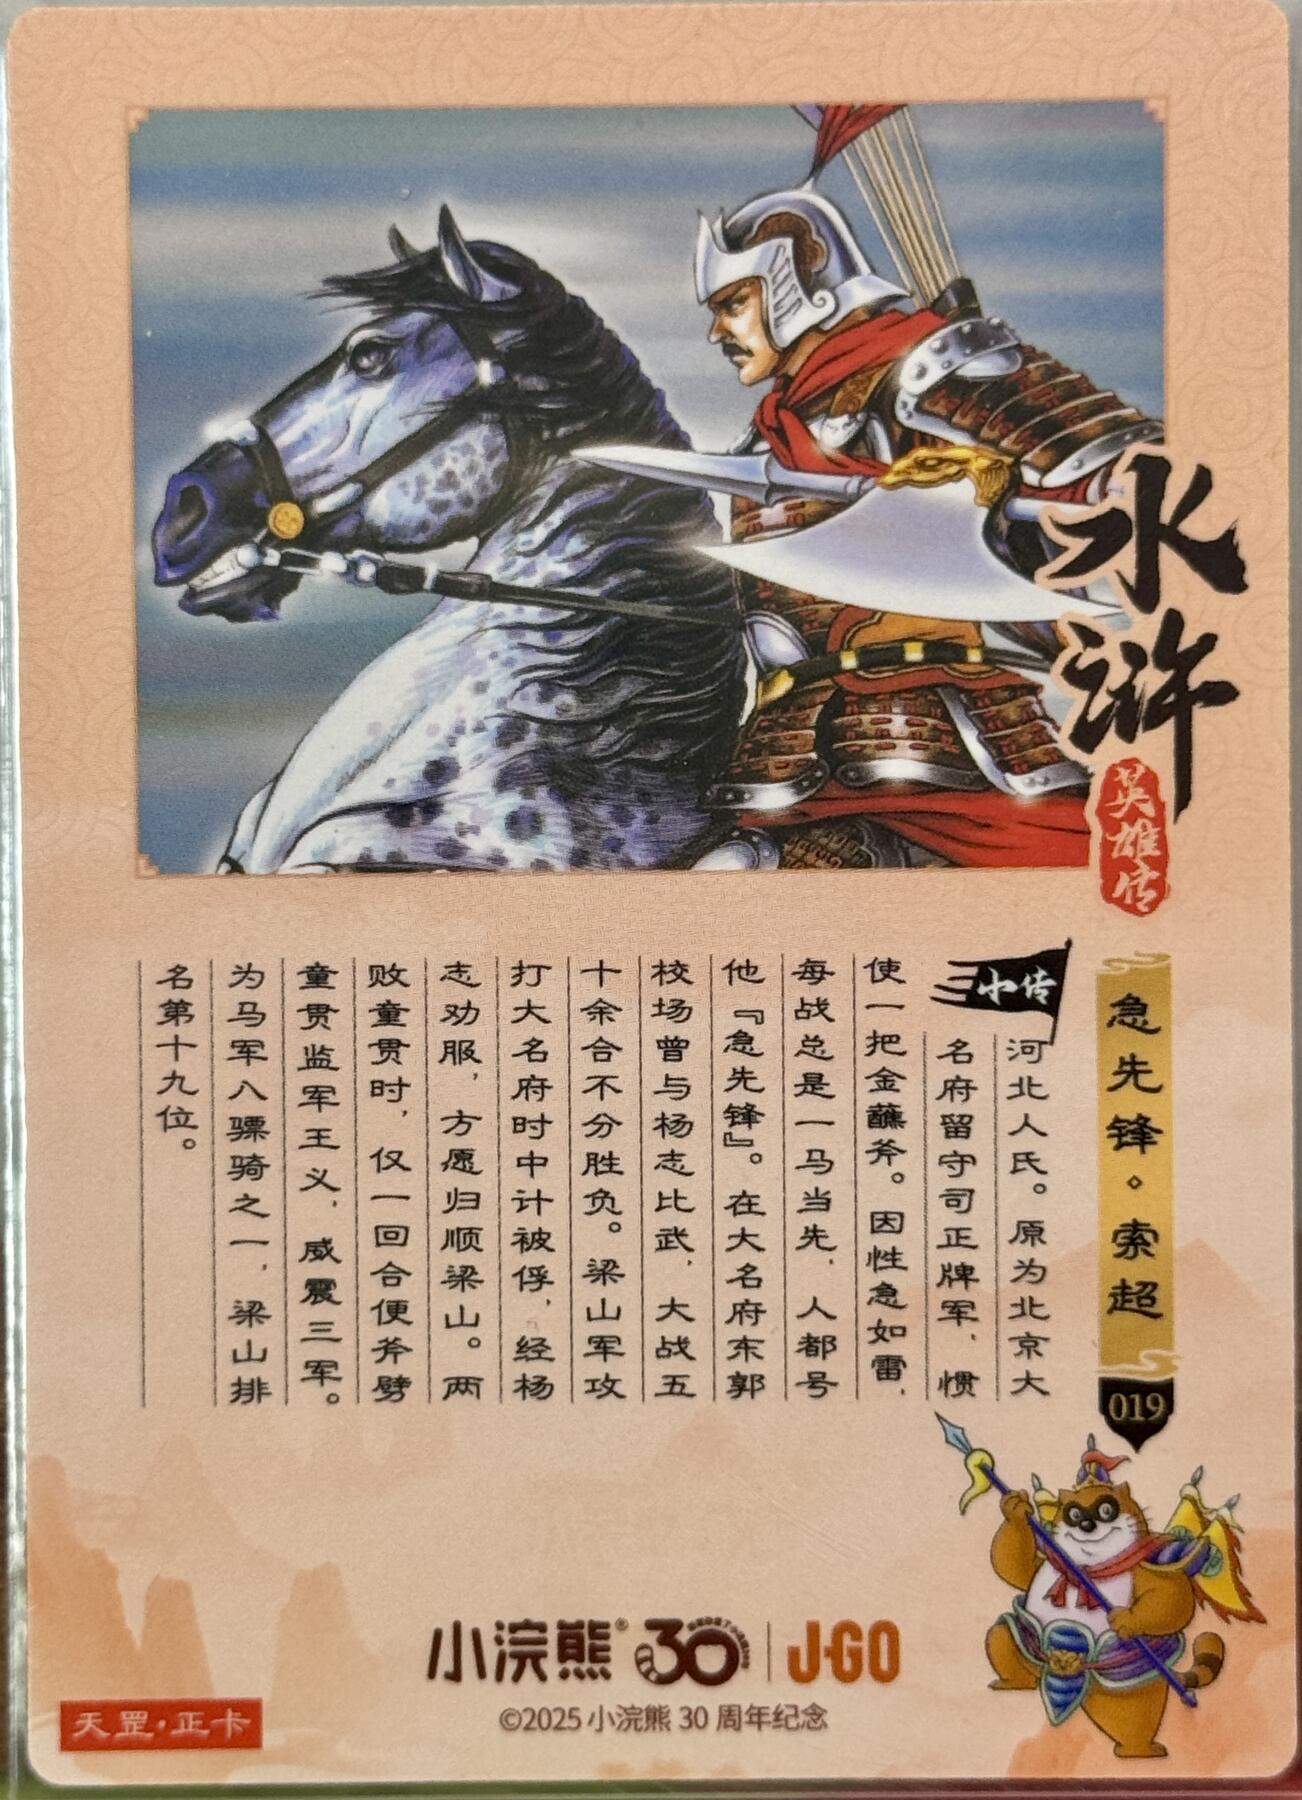 水浒
英雄传
急先锋·索超
019
小传
河北人氏。原为北京大
名府留守司正牌军，惯
使一把金蘸斧。因性急如雷，
每战总是一马当先，人都号
他『急先锋』。在大名府东郭
校场曾与杨志比武，大战五
十余合不分胜负。梁山军攻
打大名府时中计被俘，经杨
志劝服，方愿归顺梁山。两
败童贯时，仅一回合便斧劈
童贯监军王义，威震三军。
为马军八骠骑之一，梁山排
名第十九位。
小浣熊® 30 | J·GO
©2025 小浣熊 30 周年纪念
天罡·正卡